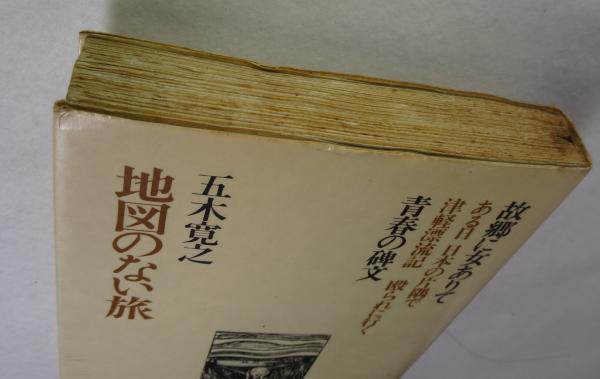 故郷に女ありて
ある日 日本の片隅で
津軽漂流記 殴られに行く
青春の碑文
五木寛之
地図のない旅